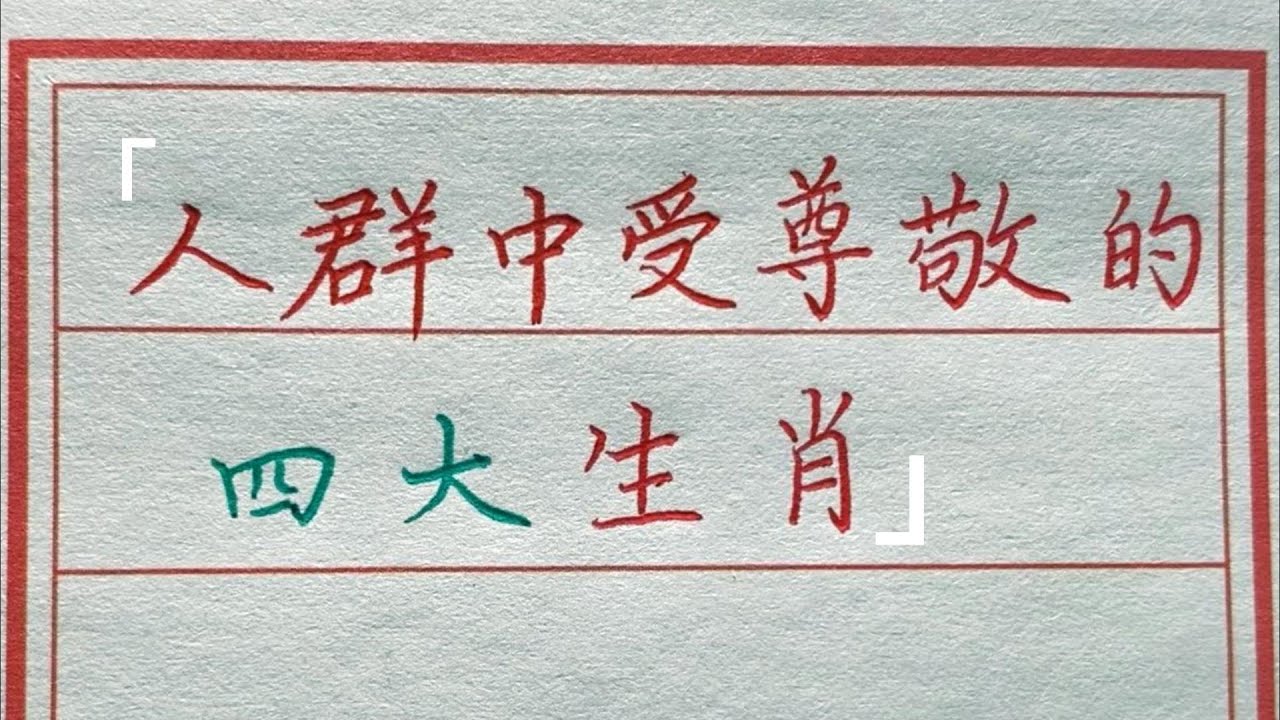 「人群中受尊敬的
四大生肖」